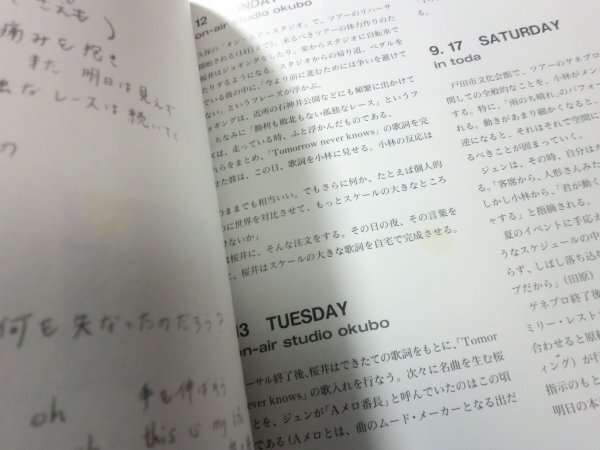 さえも)
痛みを抱き
まだ 明日は見えず
なレースは続いてく
の
何を失なったのだろう?
手を伸ばそう
oh
this is my
12
MONDAY
on-air studio okubo
久保の「オンエア・スタジオ」で、ツアーのリハーサ
開始される(14日まで)。来るべきツアーの体力作りのた
桜井はジョギングをしたり、家からスタジオに自転車で
たりするようになる。スタジオからの帰り道、ペダルを
ている彼の中に、「今より前に進むためには争いを避けて
ない」というフレーズが浮かぶ。
ョギングは、近所の石神井公園などにも頻繁に出かけて
ちなみに「勝利も敗北もない孤独なレース」というフ
ズは、走っている時、ふと浮かんだものである。
れらをまとめ、「Tomorrow never knows」の歌詞を完
せた彼は、この日、歌詞を小林に見せる。小林の反応は
のままでも相当いい。でもさらに何か、たとえば個人的
のに世界を対比させて、もっとスケールの大きなところ
けないか」
は桜井に、そんな注文をする。その日の夜、その言葉を
に、桜井はスケールの大きな歌詞を自宅で完成させる。
13 TUESDAY
on-air studio okubo
ーサル終了後、桜井はできたての歌詞をもとに、「Tomor
never knows」の歌入れを行なう。次々に名曲を生む桜
とを、ジェンが「Aメロ番長」と呼んでいたのはこの頃
である(Aメロとは、曲のムード・メーカーとなる出だ
9. 17 SATURDAY
in toda
戸田市文化会館で、ツアーのゲネプロ
関しての全般的なことを、小林がメン
する。特に、「雨のち晴れ」のパフォー
れる。動きがあまり細かくなると、
逆になると、それはそれで空間に
るべきことが固まっていく。
ジェンは、その時、自分は
る。「客席から、人形さんみた
しかし小林から、「君が動く
ャする」と指摘される。
夏のイベントに手応え
うなスケジュールの中
らず、しばし落ち込む
プだから」(田原)
ゲネプロ終了後
ミリー・レスト
合わせると原
ィング)が
指示のもと
明日の本